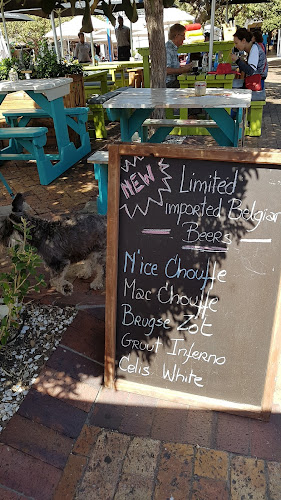 NEW
Limited
imported Belgian
Beers
N'ice Chouffe
Mac Chouffe
Brugse Zot
Grout Inferno
Celis White